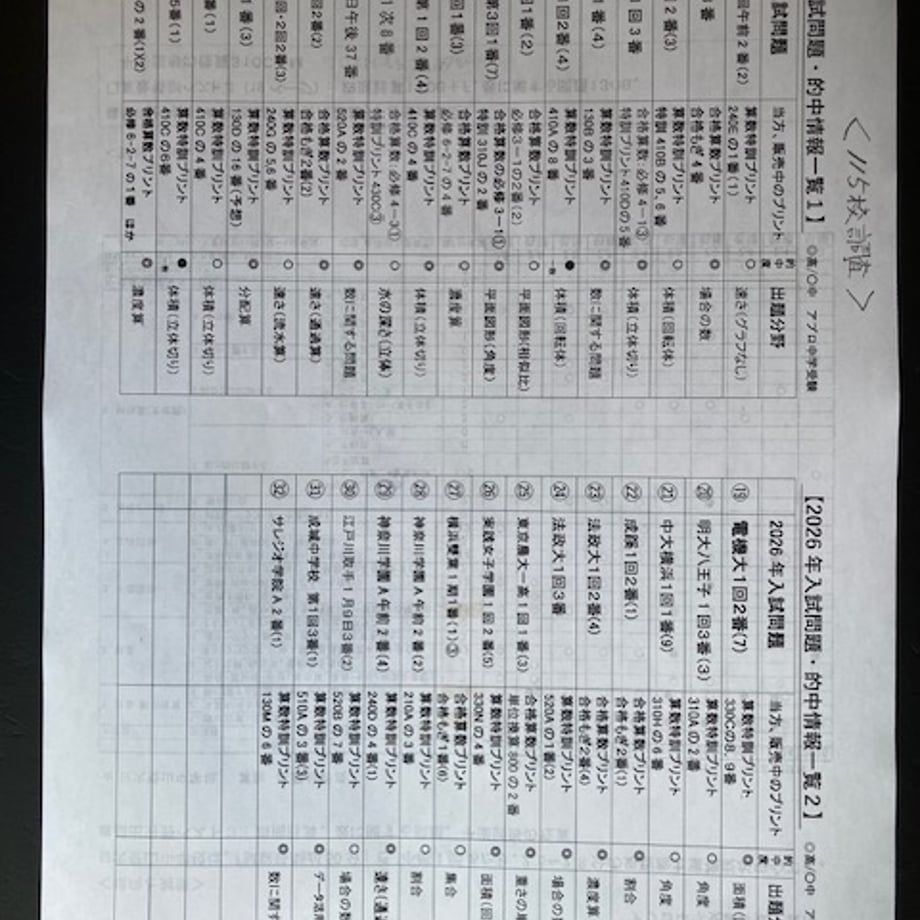 ＜115校調査＞
試問題・的中情報一覧1】 ◎高/○中 アプロ中学受験
試問題 当方、販売中のプリント 的中度 出題分野
回午前2番(2) 算数特訓プリント 240Eの1番(1) ○ 速さ(グラフなし)
番 合格算数プリント 合格もぎ4番 ◎ 場合の数
2番(3) 算数特訓プリント 特訓410Bの5、6番 ○ 体積(回転体)
1回3番 合格算数 必修4-1③ 特訓プリント410Dの5番 ◎ 体積(立体切り)
1番(4) 算数特訓プリント 130Bの3番 ◎ 数に関する問題
1回2番(4) 算数特訓プリント 410Aの8番 ● 体積(回転体)
回1番(2) 合格算数プリント 必修3-1の2番(2) ○ 平面図形(相似比)
第3回1番(7) 合格算数の必修3-1① 特訓310Jの2番 ◎ 平面図形(角度)
回1番(3) 合格算数プリント 必修6-2-7の4番 ○ 濃度算
第1回2番(4) 算数特訓プリント 410Cの4番 ◎ 体積(立体切り)
1次8番 合格算数:必修4-3① 特訓プリント430C③ ○ 水の深さ(立体)
日午後37番 算数特訓プリント 520Aの2番 ◎ 数に関する問題
回2番(2) 合格算数プリント 合格もぎ2番(2) ◎ 速さ(通過算)
回・2回2番(3) 算数特訓プリント 240Gの5,6番 ○ 速さ(流水算)
1番(3) 算数特訓プリント 130Dの16番(予想) ◎ 分配算
番(1) 算数特訓プリント 410Cの4番 ○ 体積(立体切り)
5番(1) 算数特訓プリント 410Cの6番 ● 体積(立体切り)
の2番(1)(2) 合格算数プリント 必修6-2-7の1番 ほか ◎ 濃度算
【2026年入試問題・的中情報一覧2】 ◎高/○中 ア
2026年入試問題 当方、販売中のプリント 的中度 出題
⑲ 電機大1回2番(7) 算数特訓プリント 330Cの8、9番 ◎ 面積
⑳ 明大八王子1回3番(3) 算数特訓プリント 310Aの2番 ○ 角度
㉑ 中大横浜1回1番(9) 算数特訓プリント 310Hの6番 ○ 角度
㉒ 成蹊1回2番(1) 合格算数プリント 合格もぎ2番(1) ◎ 割合
㉓ 法政大1回2番(4) 合格算数プリント 合格もぎ2番(4) ○ 濃度算
㉔ 法政大1回3番 算数特訓プリント 520Aの1番(2) ◎ 場合の
㉕ 東京農大一高1回1番(3) 合格算数プリント 単位換算500の2番 ◎ 重さの
㉖ 実践女子学園1回2番(5) 算数特訓プリント 330Nの4番 ◎ 面積(
㉗ 横浜雙葉1期1番(1)③ 合格算数プリント 合格もぎ1番(6) ○ 集合
㉘ 神奈川学園A午前2番(2) 算数特訓プリント 210Aの3番 ○ 割合
㉙ 神奈川学園A午前2番(4) 算数特訓プリント 240Dの4番(1) ◎ 速さ(通
㉚ 江戸川取手1月9日3番(2) 算数特訓プリント 520Bの7番 ○ 場合の数
㉛ 成城中学校 第1回3番(1) 算数特訓プリント 510Aの3番(3) ◎ データ活用
㉜ サレジオ学院A2番(1) 算数特訓プリント 130Mの6番 ◎ 数に関す